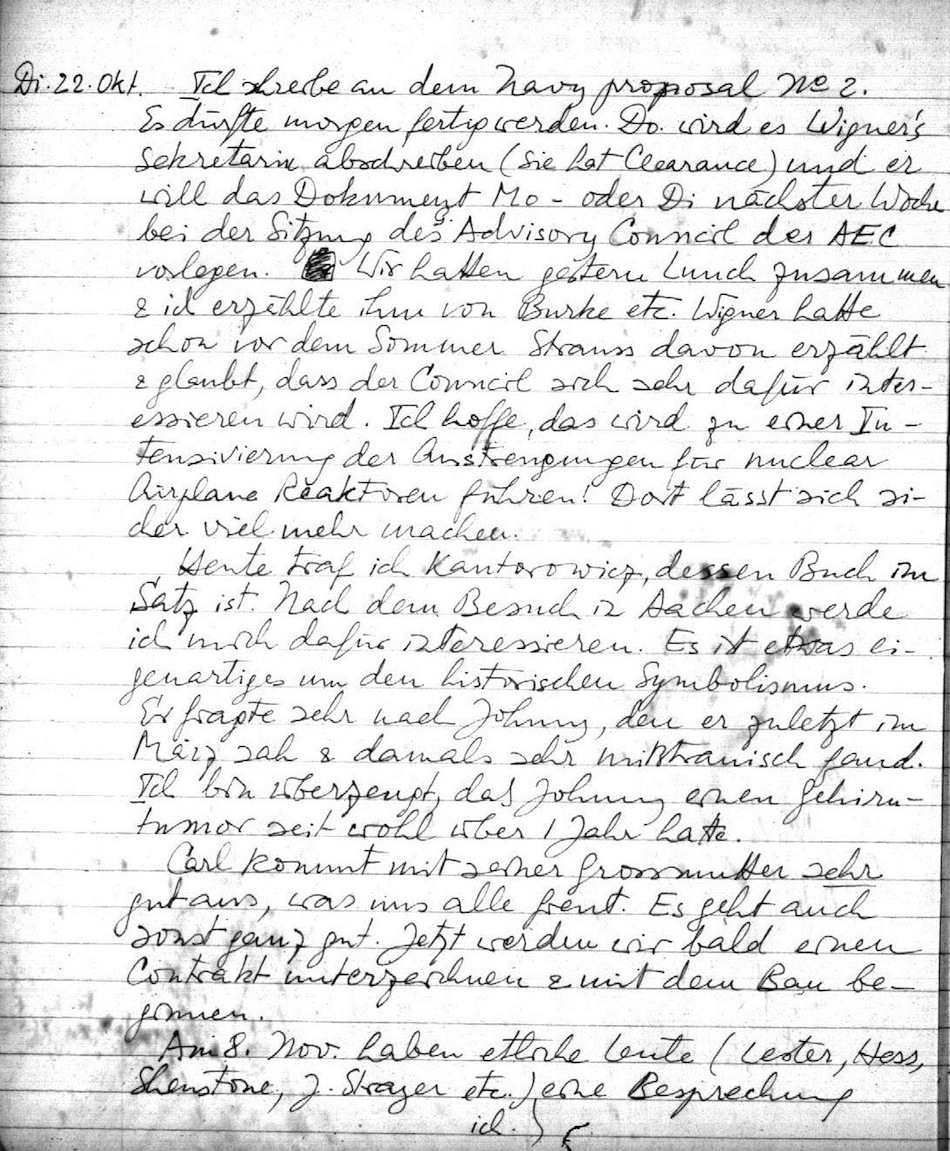 Di. 22. Okt. Ich schreibe an dem Navy proposal No 2.
Es dürfte morgen fertig werden. Do. wird es Wigner's
Sekretärin abschreiben (sie hat Clearance) und er
will das Dokument Mo - oder Di nächster Woche
bei der Sitzung des Advisory Council der AEC
vorlegen. Wir hatten gestern Lunch zusammen
& ich erzählte ihm von Burke etc. Wigner hatte
schon vor dem Sommer Strauss davon erzählt
& glaubt, dass der Council sich sehr dafür inter-
essieren wird. Ich hoffe, das wird zu einer In-
tensivierung der Anstrengungen für nuclear
Airplane Reaktoren führen! Dort lässt sich si-
cher viel mehr machen.
Heute traf ich Kantorowicz, dessen Buch im
Satz ist. Nach dem Besuch in Aachen werde
ich mich dafür interessieren. Es ist etwas ei-
genartiges um den historischen Symbolismus.
Er fragte sehr nach Johnny, den er zuletzt im
März sah & damals sehr misstrauisch fand.
Ich bin überzeugt, dass Johnny einen Gehirn-
tumor seit wohl über 1 Jahr hatte.
Carl kommt mit seiner Grossmutter sehr
gut aus, was uns alle freut. Es geht auch
sonst ganz gut. Jetzt werden wir bald einen
Contrakt unterzeichnen & mit dem Bau be-
ginnen.
Am 8. Nov. haben etliche Leute (Lester, Hess,
Shenstone, J. Strayer etc.) eine Besprechung
ich